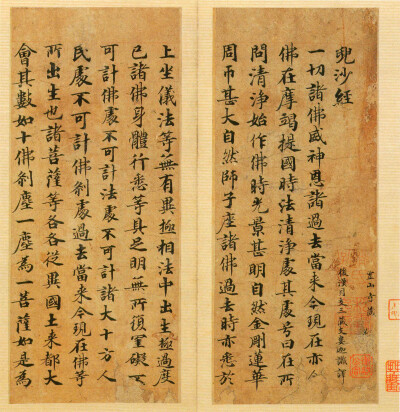 兜沙經
山寺藏
後漢月支三藏支婁迦讖譯
一切諸佛威神恩諸過去當來今現在亦尒
佛在摩竭提國時法清淨處其處号曰在所
問清淨始作佛時光景甚明自然金剛蓮華
周帀甚大自然師子座諸佛過去時亦悉於
上坐儀法等無有異極相法中出生極過度
已諸佛身體行悉等具足明無所復罣礙不
可計佛處不可計法處不可計諸大十方人
民處不可計佛剎處過去當来今現在佛等
所出生也諸菩薩等各各從異國土来都大
會其數如十佛剎塵一塵為一菩薩如是為